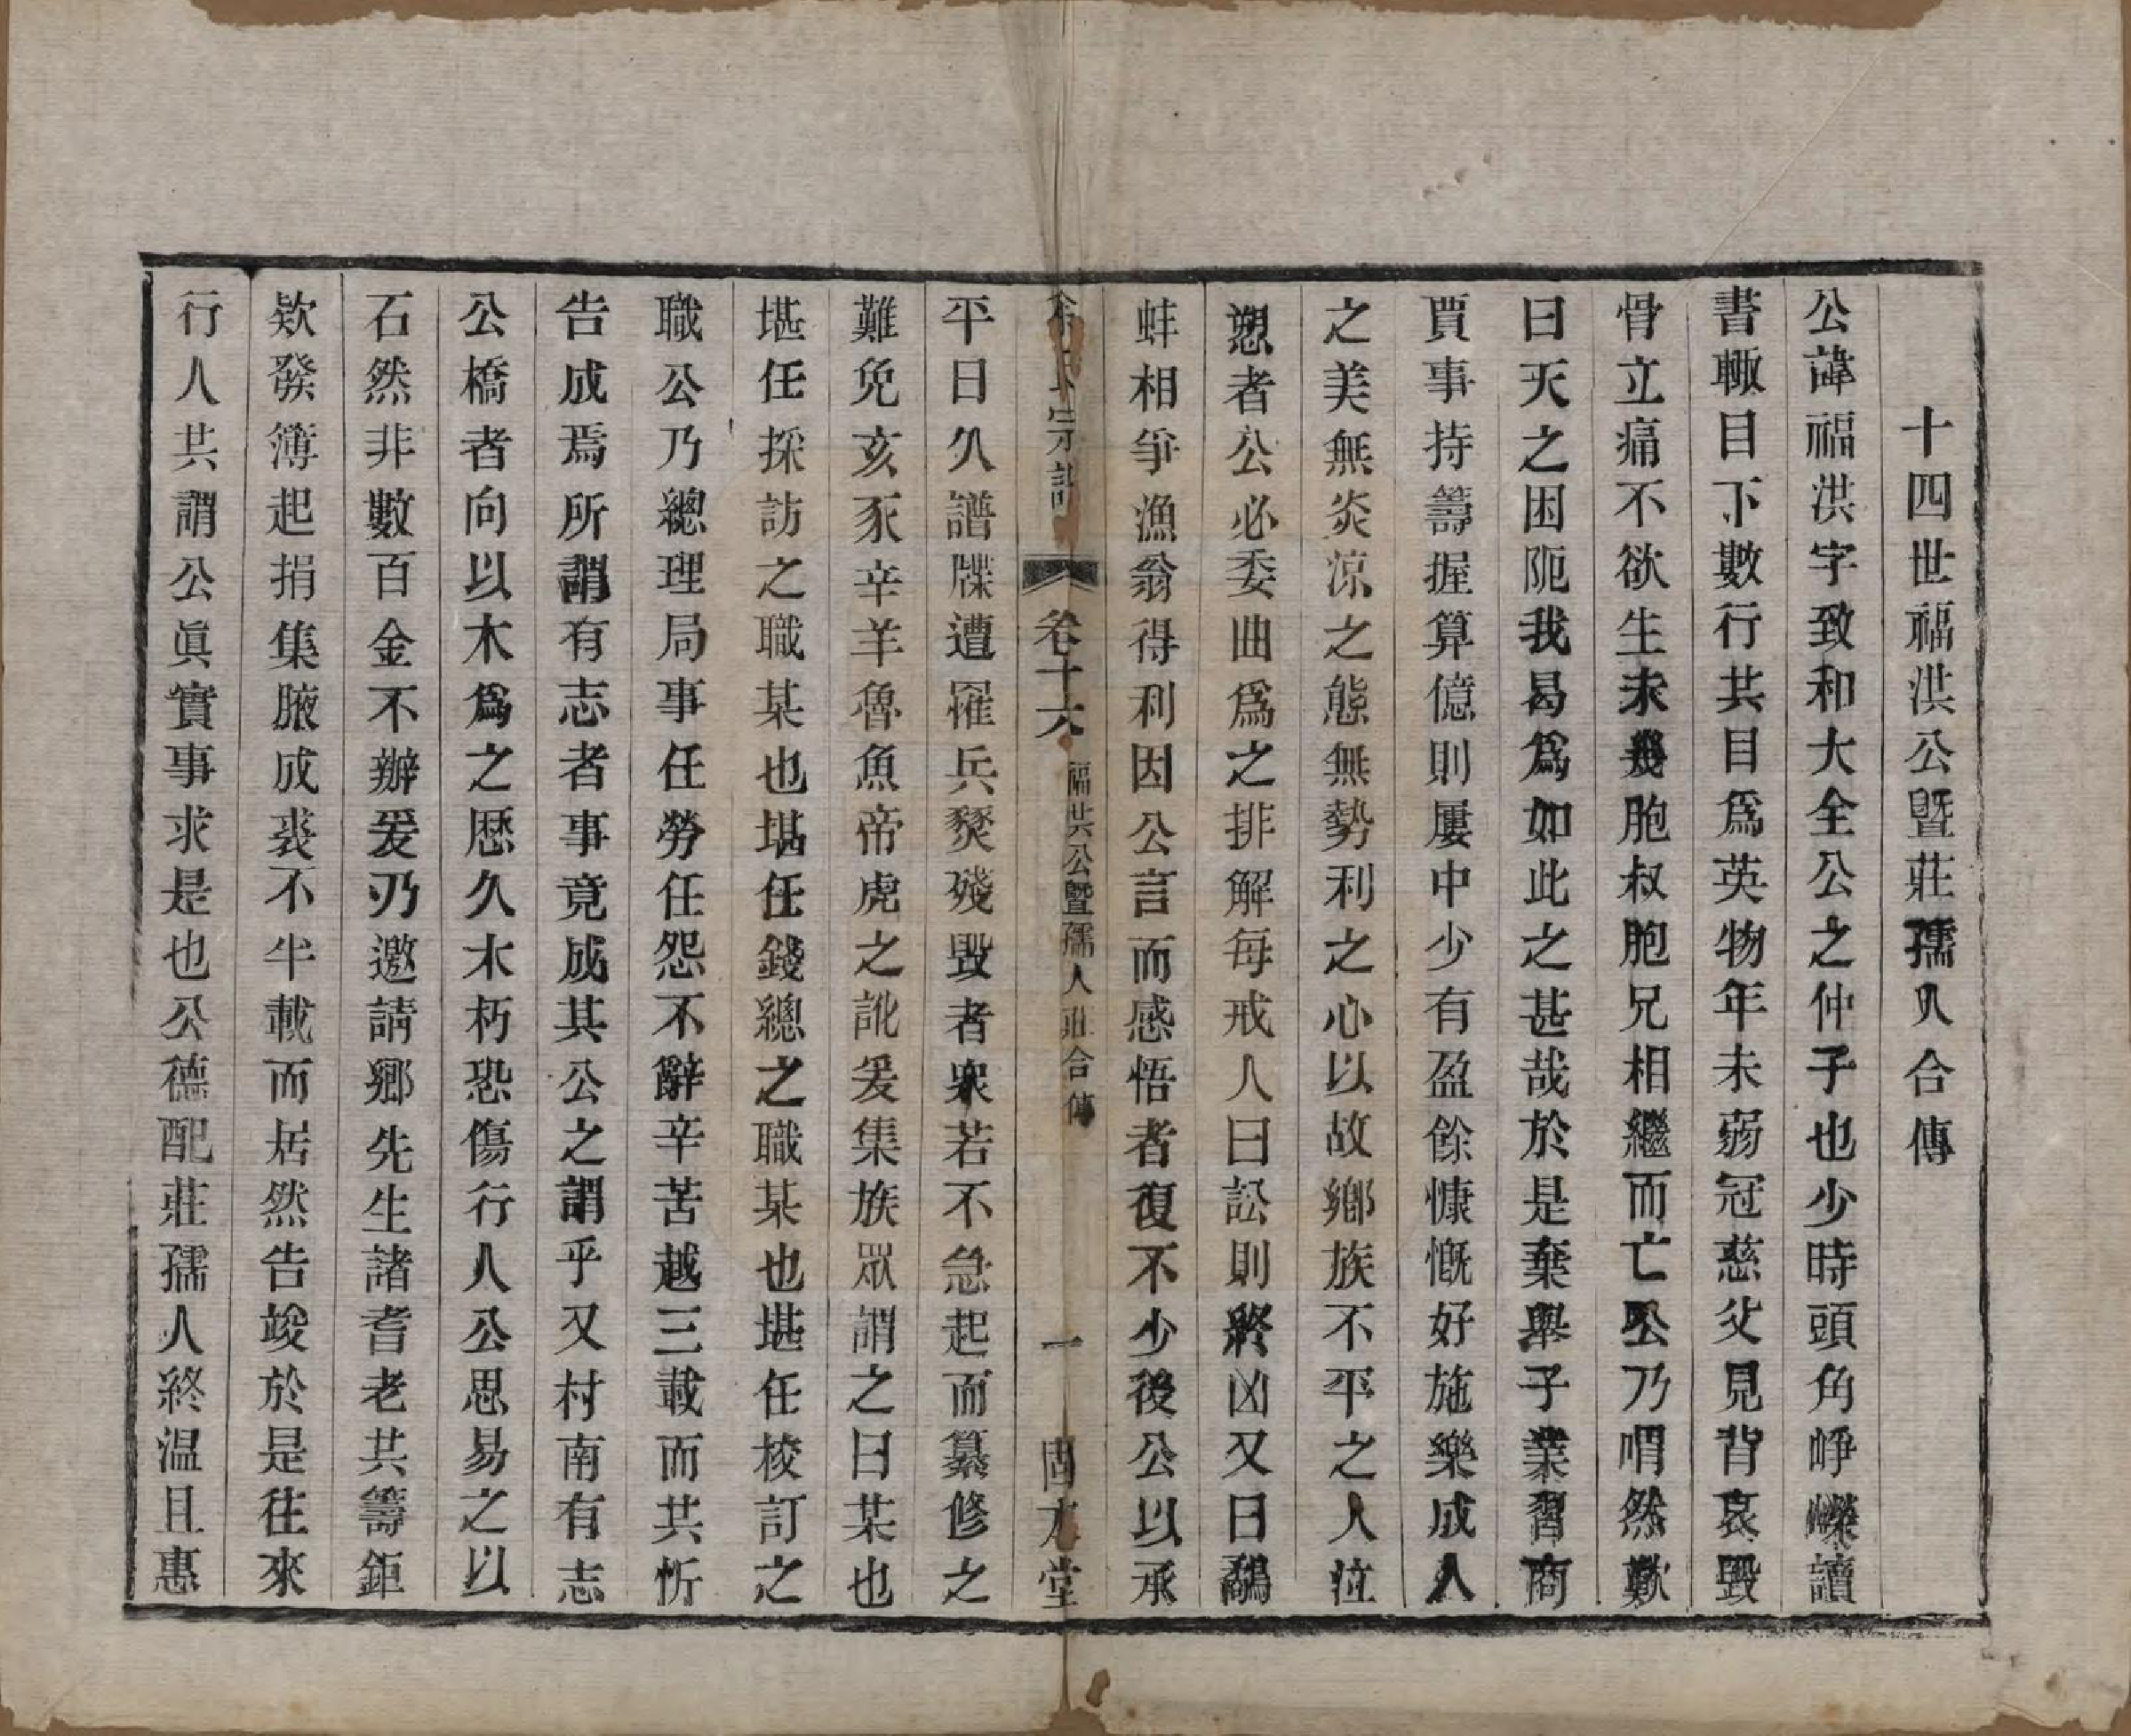 十四世福洪公暨莊孺人合傳
公諱福洪字致和大全公之仲子也少時頭角崢嶸讀
書輙目下數行共目爲英物年未弱冠慈父見背哀毀
骨立痛不欲生未幾胞叔胞兄相繼而亡公乃喟然歎
曰天之困阨我曷爲如此之甚哉於是棄舉子業習商
賈事持籌握算億則屢中少有盈餘慷慨好施樂成人
之美無炎凉之態無勢利之心以故鄉族不平之人泣
愬者公必委曲爲之排解每戒人曰訟則終凶又曰鷸
蚌相爭漁翁得利因公言而感悟者復不少後公以承
氏宗譜 卷十六 福洪公暨孺人莊合傳 一 固本堂
平日久譜牒遭罹兵燹殘毀者衆若不急起而纂修之
難免亥豕辛羊魯魚帝虎之訛爰集族眾謂之曰某也
堪任採訪之職某也堪任錢總之職某也堪任校訂之
職公乃總理局事任勞任怨不辭辛苦越三載而共忻
告成焉所謂有志者事竟成其公之謂乎又村南有志
公橋者向以木爲之歷久木朽恐傷行人公思易之以
石然非數百金不辦爰乃邀請鄉先生諸耆老共籌鉅
欵發簿起捐集腋成裘不半載而居然告竣於是往來
行人共謂公眞實事求是也公德配莊孺人終温且惠